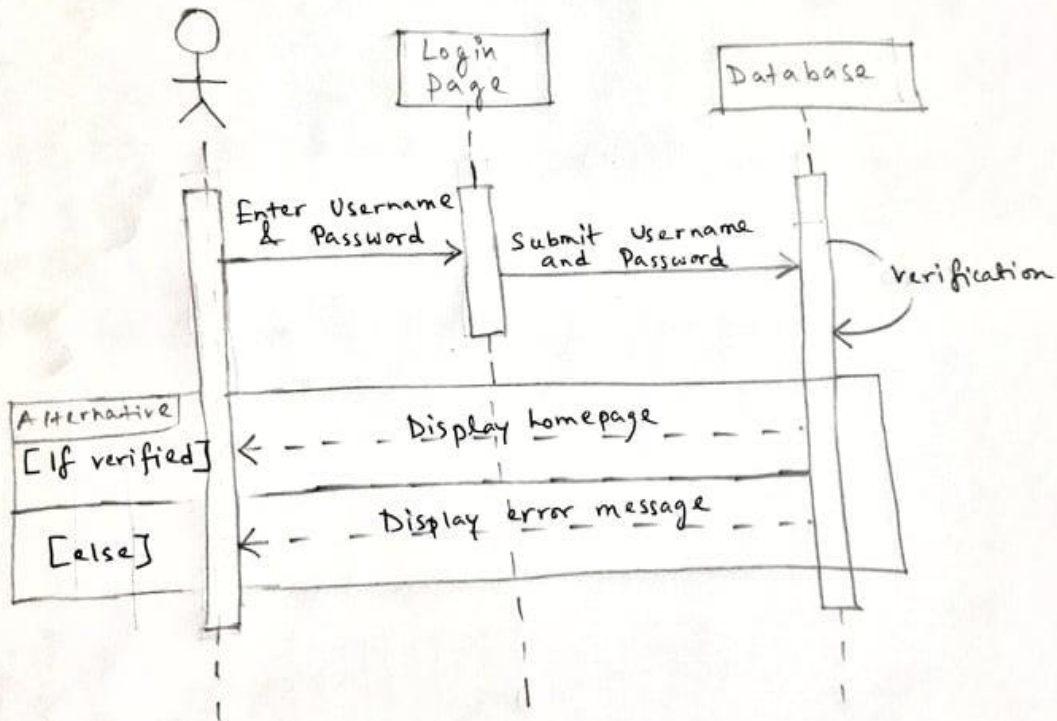 Login
Page
Database
Enter Username
& Password
Submit Username
and Password
verification
Alternative
[If verified]
Display homepage
[else]
Display error message